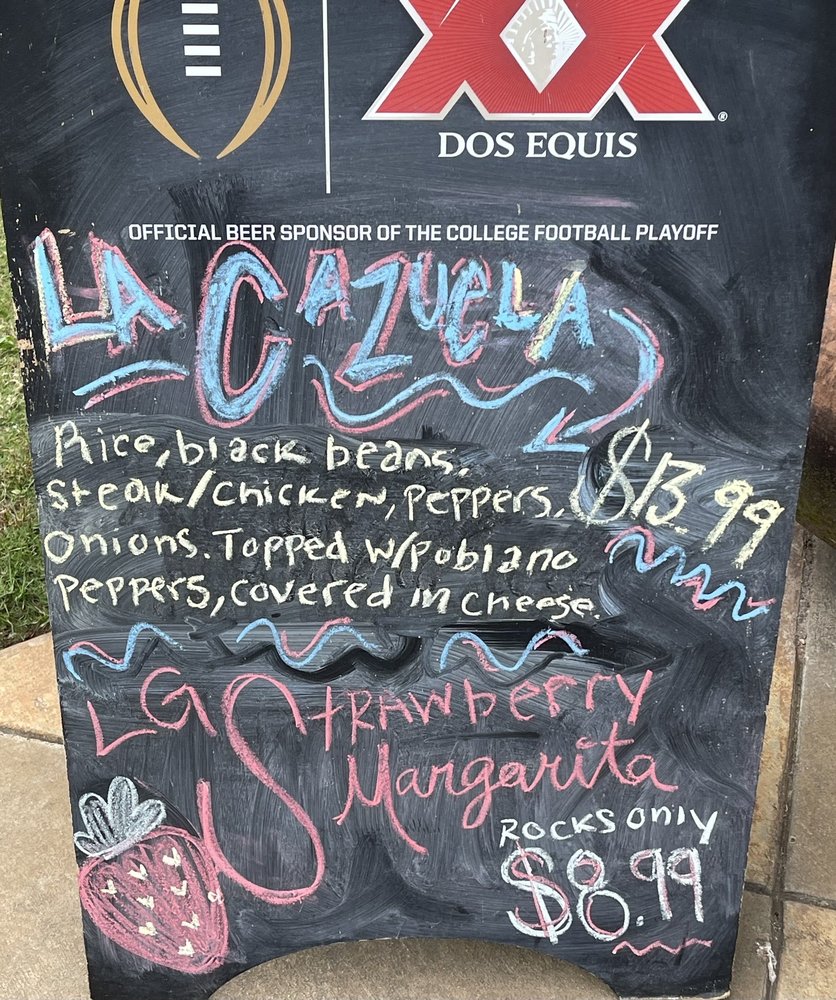 DOS EQUIS
OFFICIAL BEER SPONSOR OF THE COLLEGE FOOTBALL PLAYOFF
LA CAZUELA
Rice, black beans,
Steak/Chicken, Peppers,
Onions. Topped w/Poblano
Peppers, covered in cheese.
$13.99
LG Strawberry
Margarita
Rocks only
$8.99